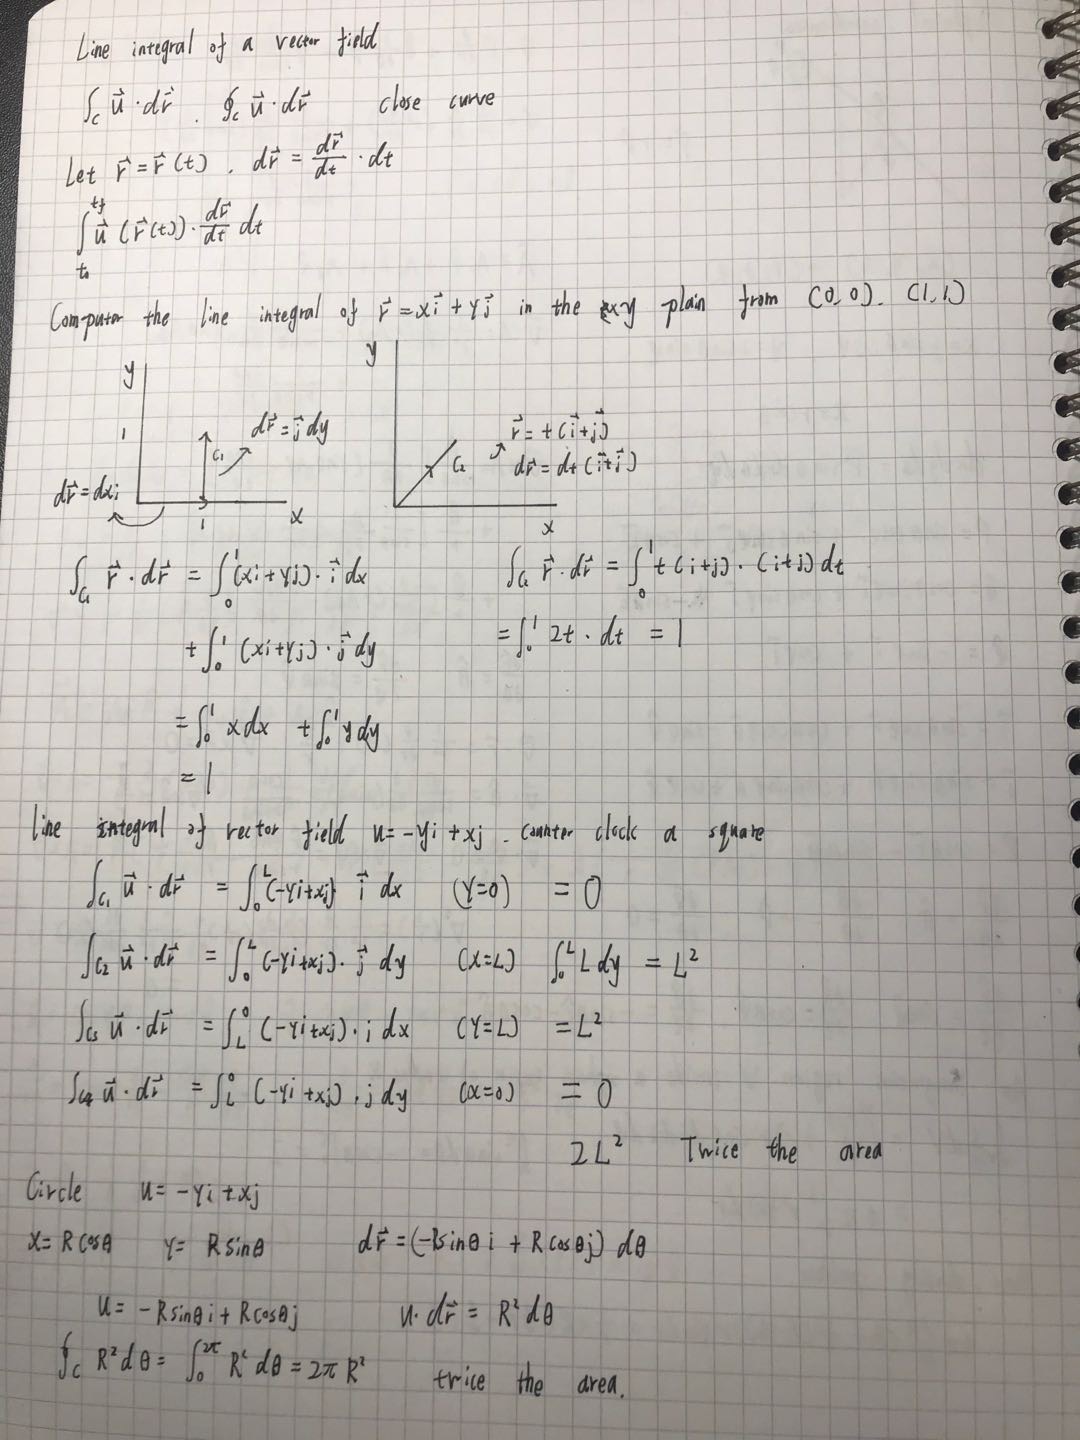 Line integral of a vector field
∫_C u⃗ · dr⃗ . ∮_C u⃗ · dr⃗ close curve
Let r⃗ = r⃗ (t) . dr⃗ = dr⃗/dt · dt
∫_{t₀}^{t_f} u⃗ (r⃗(t)) · dr⃗/dt dt
Computor the line integral of r⃗ = xi⃗ + yj⃗ in the xy plain from (0,0). (1,1)
y
1
dr⃗ = j⃗ dy
C₁
dr⃗ = dxi
1
x
y
r⃗ = t(i⃗+j⃗)
dr⃗ = dt(i⃗+j⃗)
C₂
x
∫_{C₁} r⃗ · dr⃗ = ∫₀¹ (xi+yj) · i⃗ dx
+ ∫₀¹ (xi+yj) · j⃗ dy
= ∫₀¹ x dx + ∫₀¹ y dy
= 1
∫_{C₂} r⃗ · dr⃗ = ∫₀¹ t(i+j) · (i+j) dt
= ∫₀¹ 2t · dt = 1
line integral of vector field u = -yi + xj . counter clock a square
∫_{C₁} u⃗ · dr⃗ = ∫₀^L (-yi+xj) i⃗ dx (y=0) = 0
∫_{C₂} u⃗ · dr⃗ = ∫₀^L (-yi+xj) · j⃗ dy (x=L) ∫₀^L L dy = L²
∫_{C₃} u⃗ · dr⃗ = ∫_L^0 (-yi+xj) · i dx (y=L) = L²
∫_{C₄} u⃗ · dr⃗ = ∫_L^0 (-yi+xj) · j dy (x=0) = 0
2L² Twice the area
Circle u = -yi + xj
x = R cosθ y = R sinθ dr⃗ = (-R sinθ i + R cosθ j) dθ
u = -R sinθ i + R cosθ j u · dr⃗ = R² dθ
∮_C R² dθ = ∫₀^{2π} R² dθ = 2π R² twice the area.